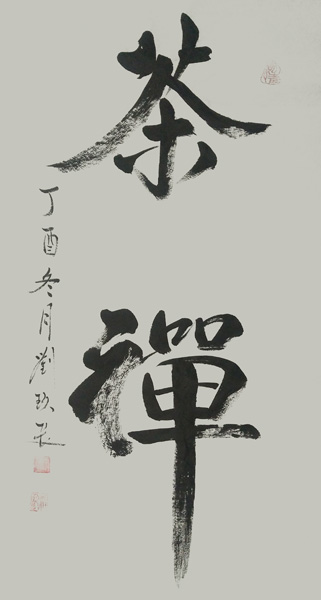 茶禪
丁酉冬月劉